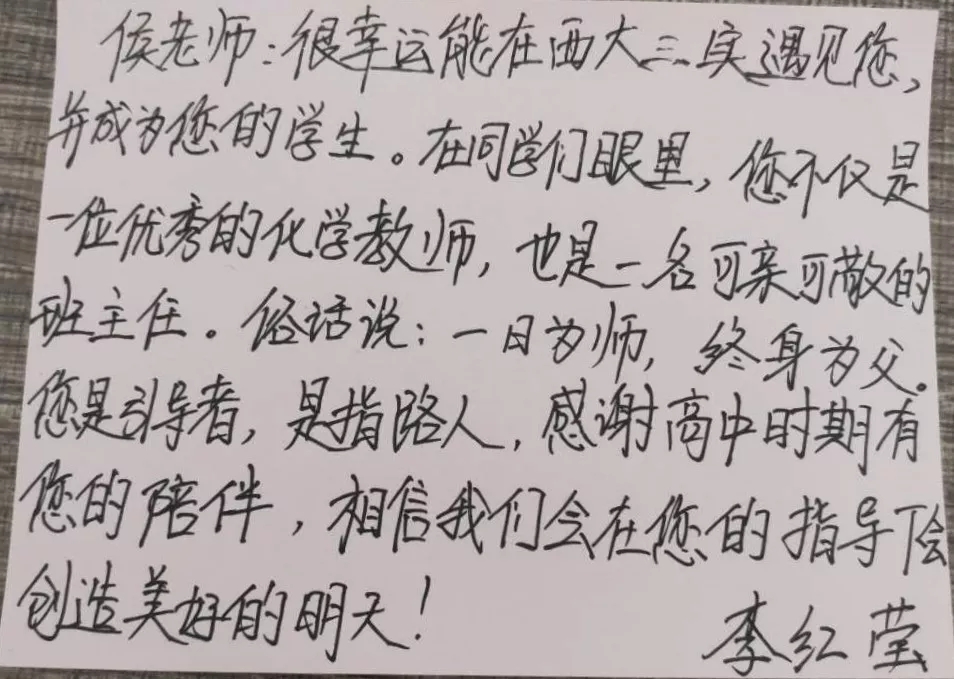 侯老师:很幸运能在西大三实遇见您,
并成为您的学生。在同学们眼里,您不仅是
一位优秀的化学教师,也是一名可亲可敬的
班主任。俗话说:一日为师,终身为父。
您是引导者,是指路人,感谢高中时期有
您的陪伴,相信我们会在您的指导下会
创造美好的明天!
李红莹